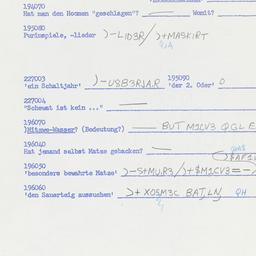 194070
Hat man den Hommen "geschlagen"? Womit?
195080
Purimspiele, -lieder )-LID3R/ )+MASKIRT
227003 195090
'ein Schaltjahr' )-USB3RJAR 'der 2. Oder' 0
227004
"Schewat ist kein ..."
196070
)Mitzwe-Wasser? (Bedeutung?) BUT M1CV3 QGL E
196040
Hat jemand selbst Matze gebacken?
196050
'besonders bewährte Matze' )-S+MU.R3/)+$M1CV3=-/
196060
'den Sauerteig aussuchen' )+ XO5M3C BAT,LN QH